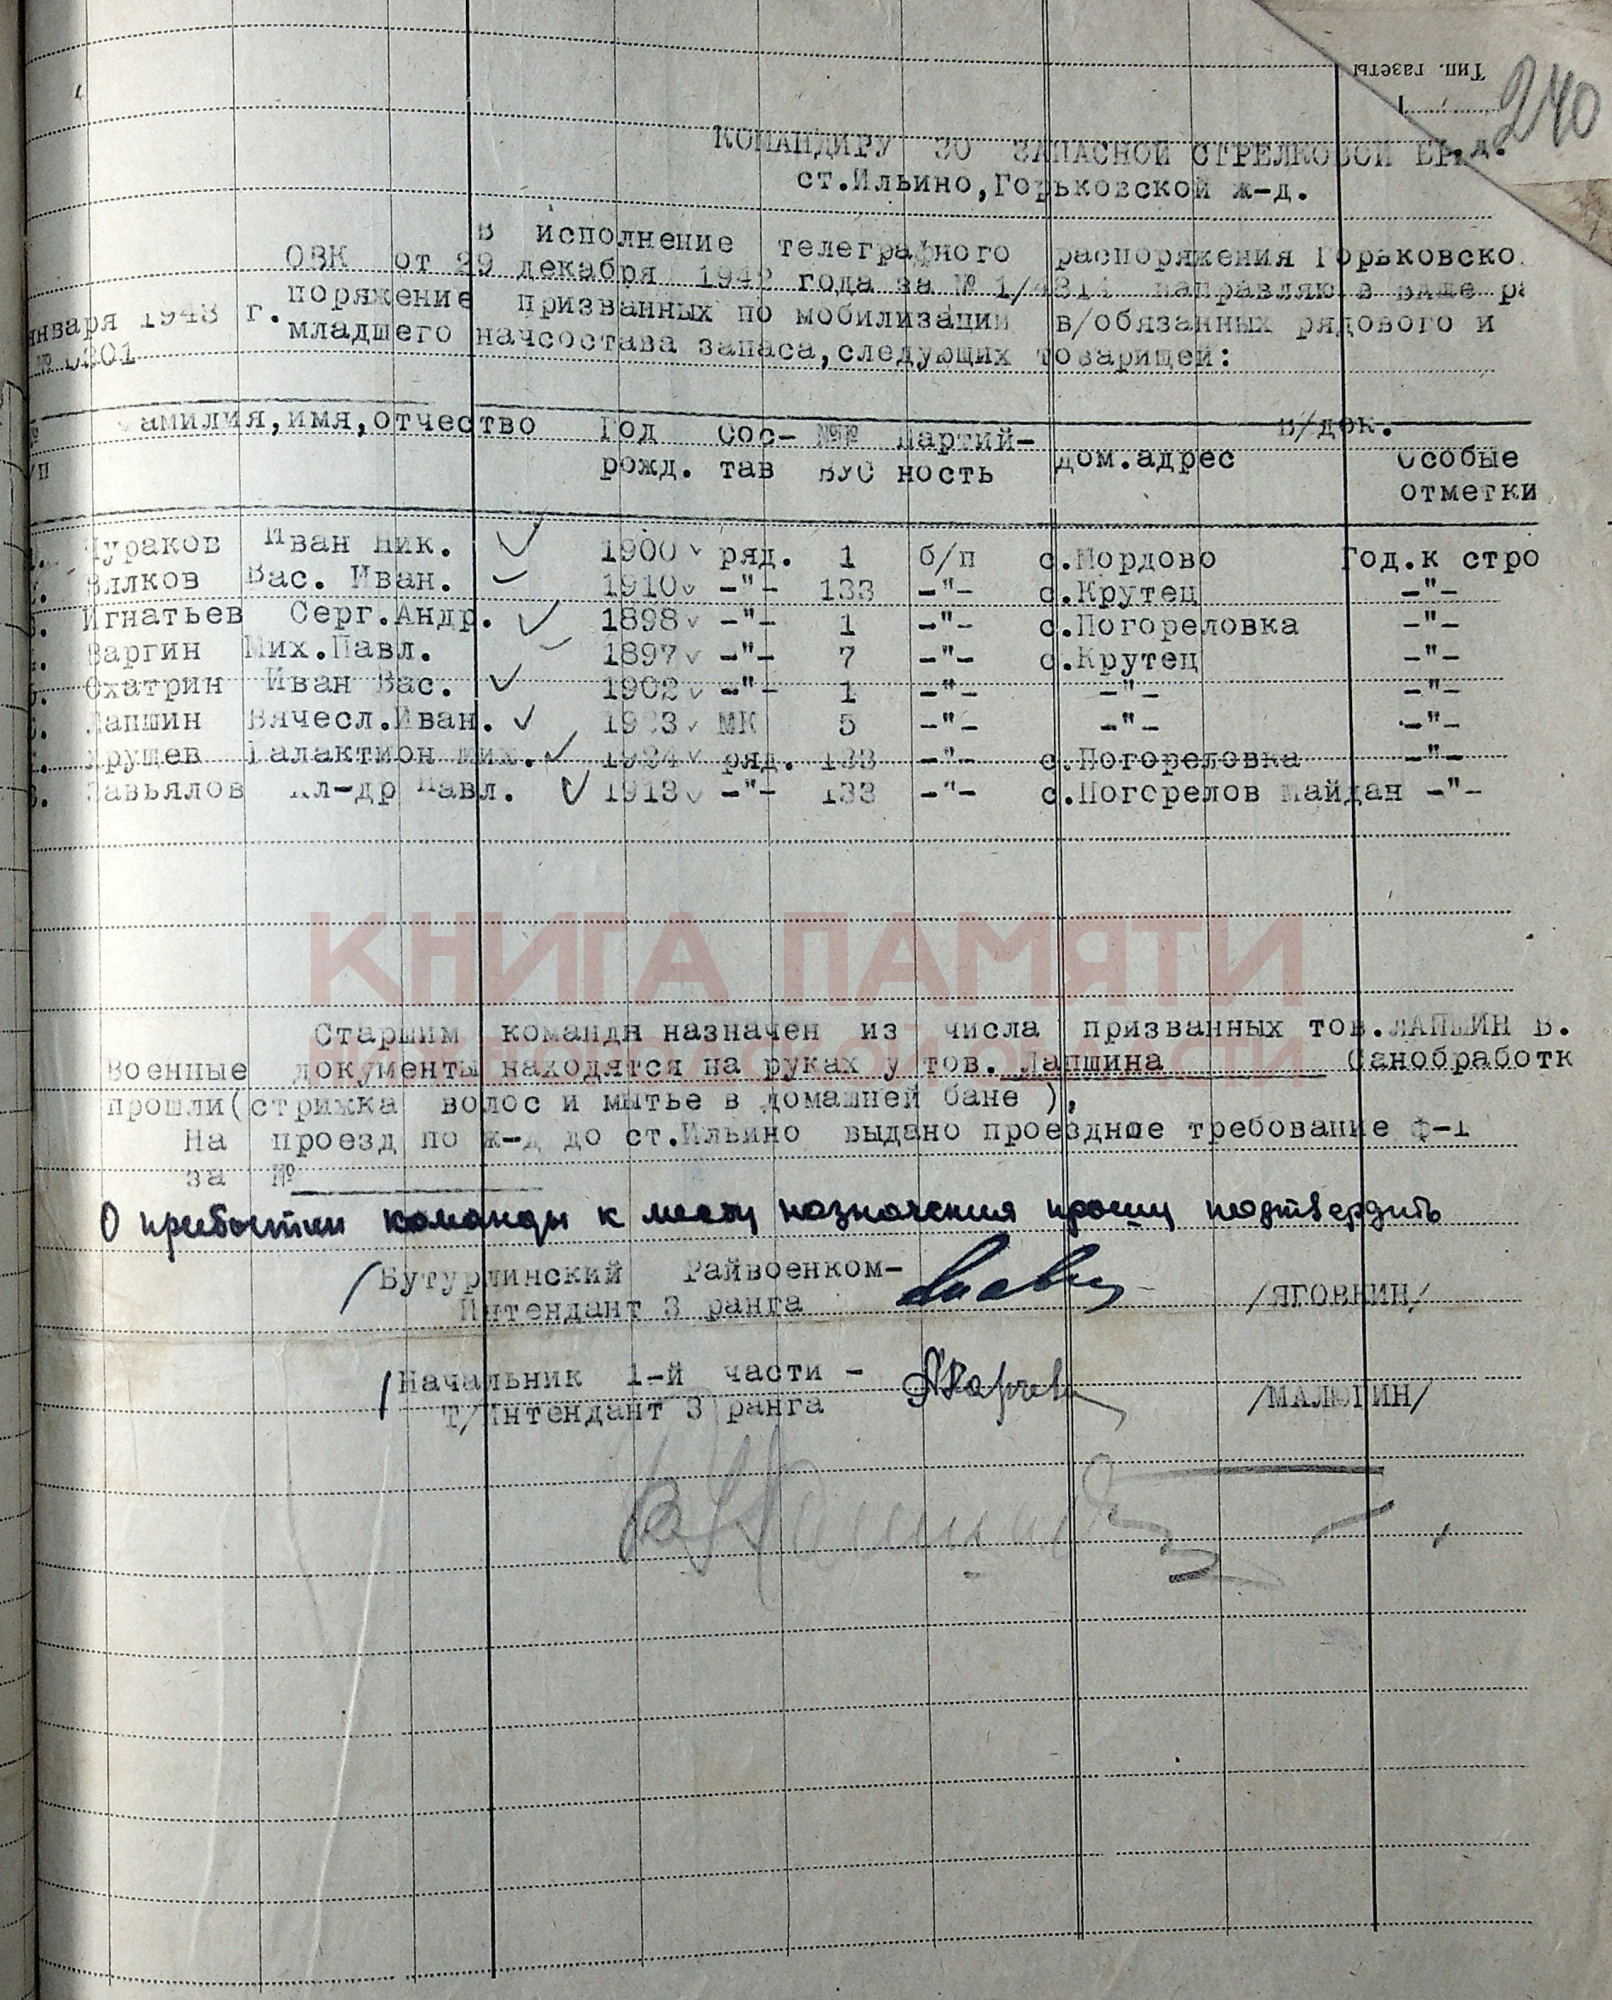 Тип. газеты
240
КОМАНДИРУ 30 ЗАПАСНОЙ СТРЕЛКОВОЙ БР.Д.
ст.Ильино,Горьковской ж-д.
В исполнение телеграфного распоряжения Горьковско
ОВК от 29 декабря 1942 года за № направляю в ваше ра
поряжение призванных по мобилизации в/обязанных рядового и
младшего начсостава запаса,следующих товарищей:
января 1943 г.
№ 0201
№ амилия,имя,отчество Год Сос- №№ Партий- дом.адрес в/док.
/п рожд. тав ВУС ность Особые
отметки
Чураков Иван Ник. 1900 ряд. 1 б/п с.Мордово Год.к стро
Вялков Вас. Иван. 1910 -"- 133 -"- с.Крутец -"-
Игнатьев Серг.Андр. 1898 -"- 1 -"- с.Погореловка -"-
Варгин Мих.Павл. 1897 -"- 7 -"- с.Крутец -"-
Охатрин Иван Вас. 1902 -"- 1 -"- -"- -"-
Лапшин Вячесл.Иван. 1923 МК 5 -"- -"- -"-
Хрущев Галактион Мих. 1924 ряд. 133 -"- с.Погореловка -"-
Завьялов Ал-др Павл. 1913 -"- 133 -"- с.Погорелов Майдан -"-
КНИГА ПАМЯТИ
Старшим команди назначен из числа призванных тов.ЛАПШИН В.
Военные документы находятся на руках у тов. Лапшина Санобработк
прошли(стрижка волос и мытье в домашней бане ),
На проезд по ж-д до ст.Ильино выдано проездное требование ф-1
за №
О прибытии команды к месту назначения прошу подтвердить
/Бутурлинский Райвоенком-
Интендант 3 ранга /ЯГОВКИН/
/Начальник 1-й части -
Т/Интендант 3 ранга /МАЛЮГИН/